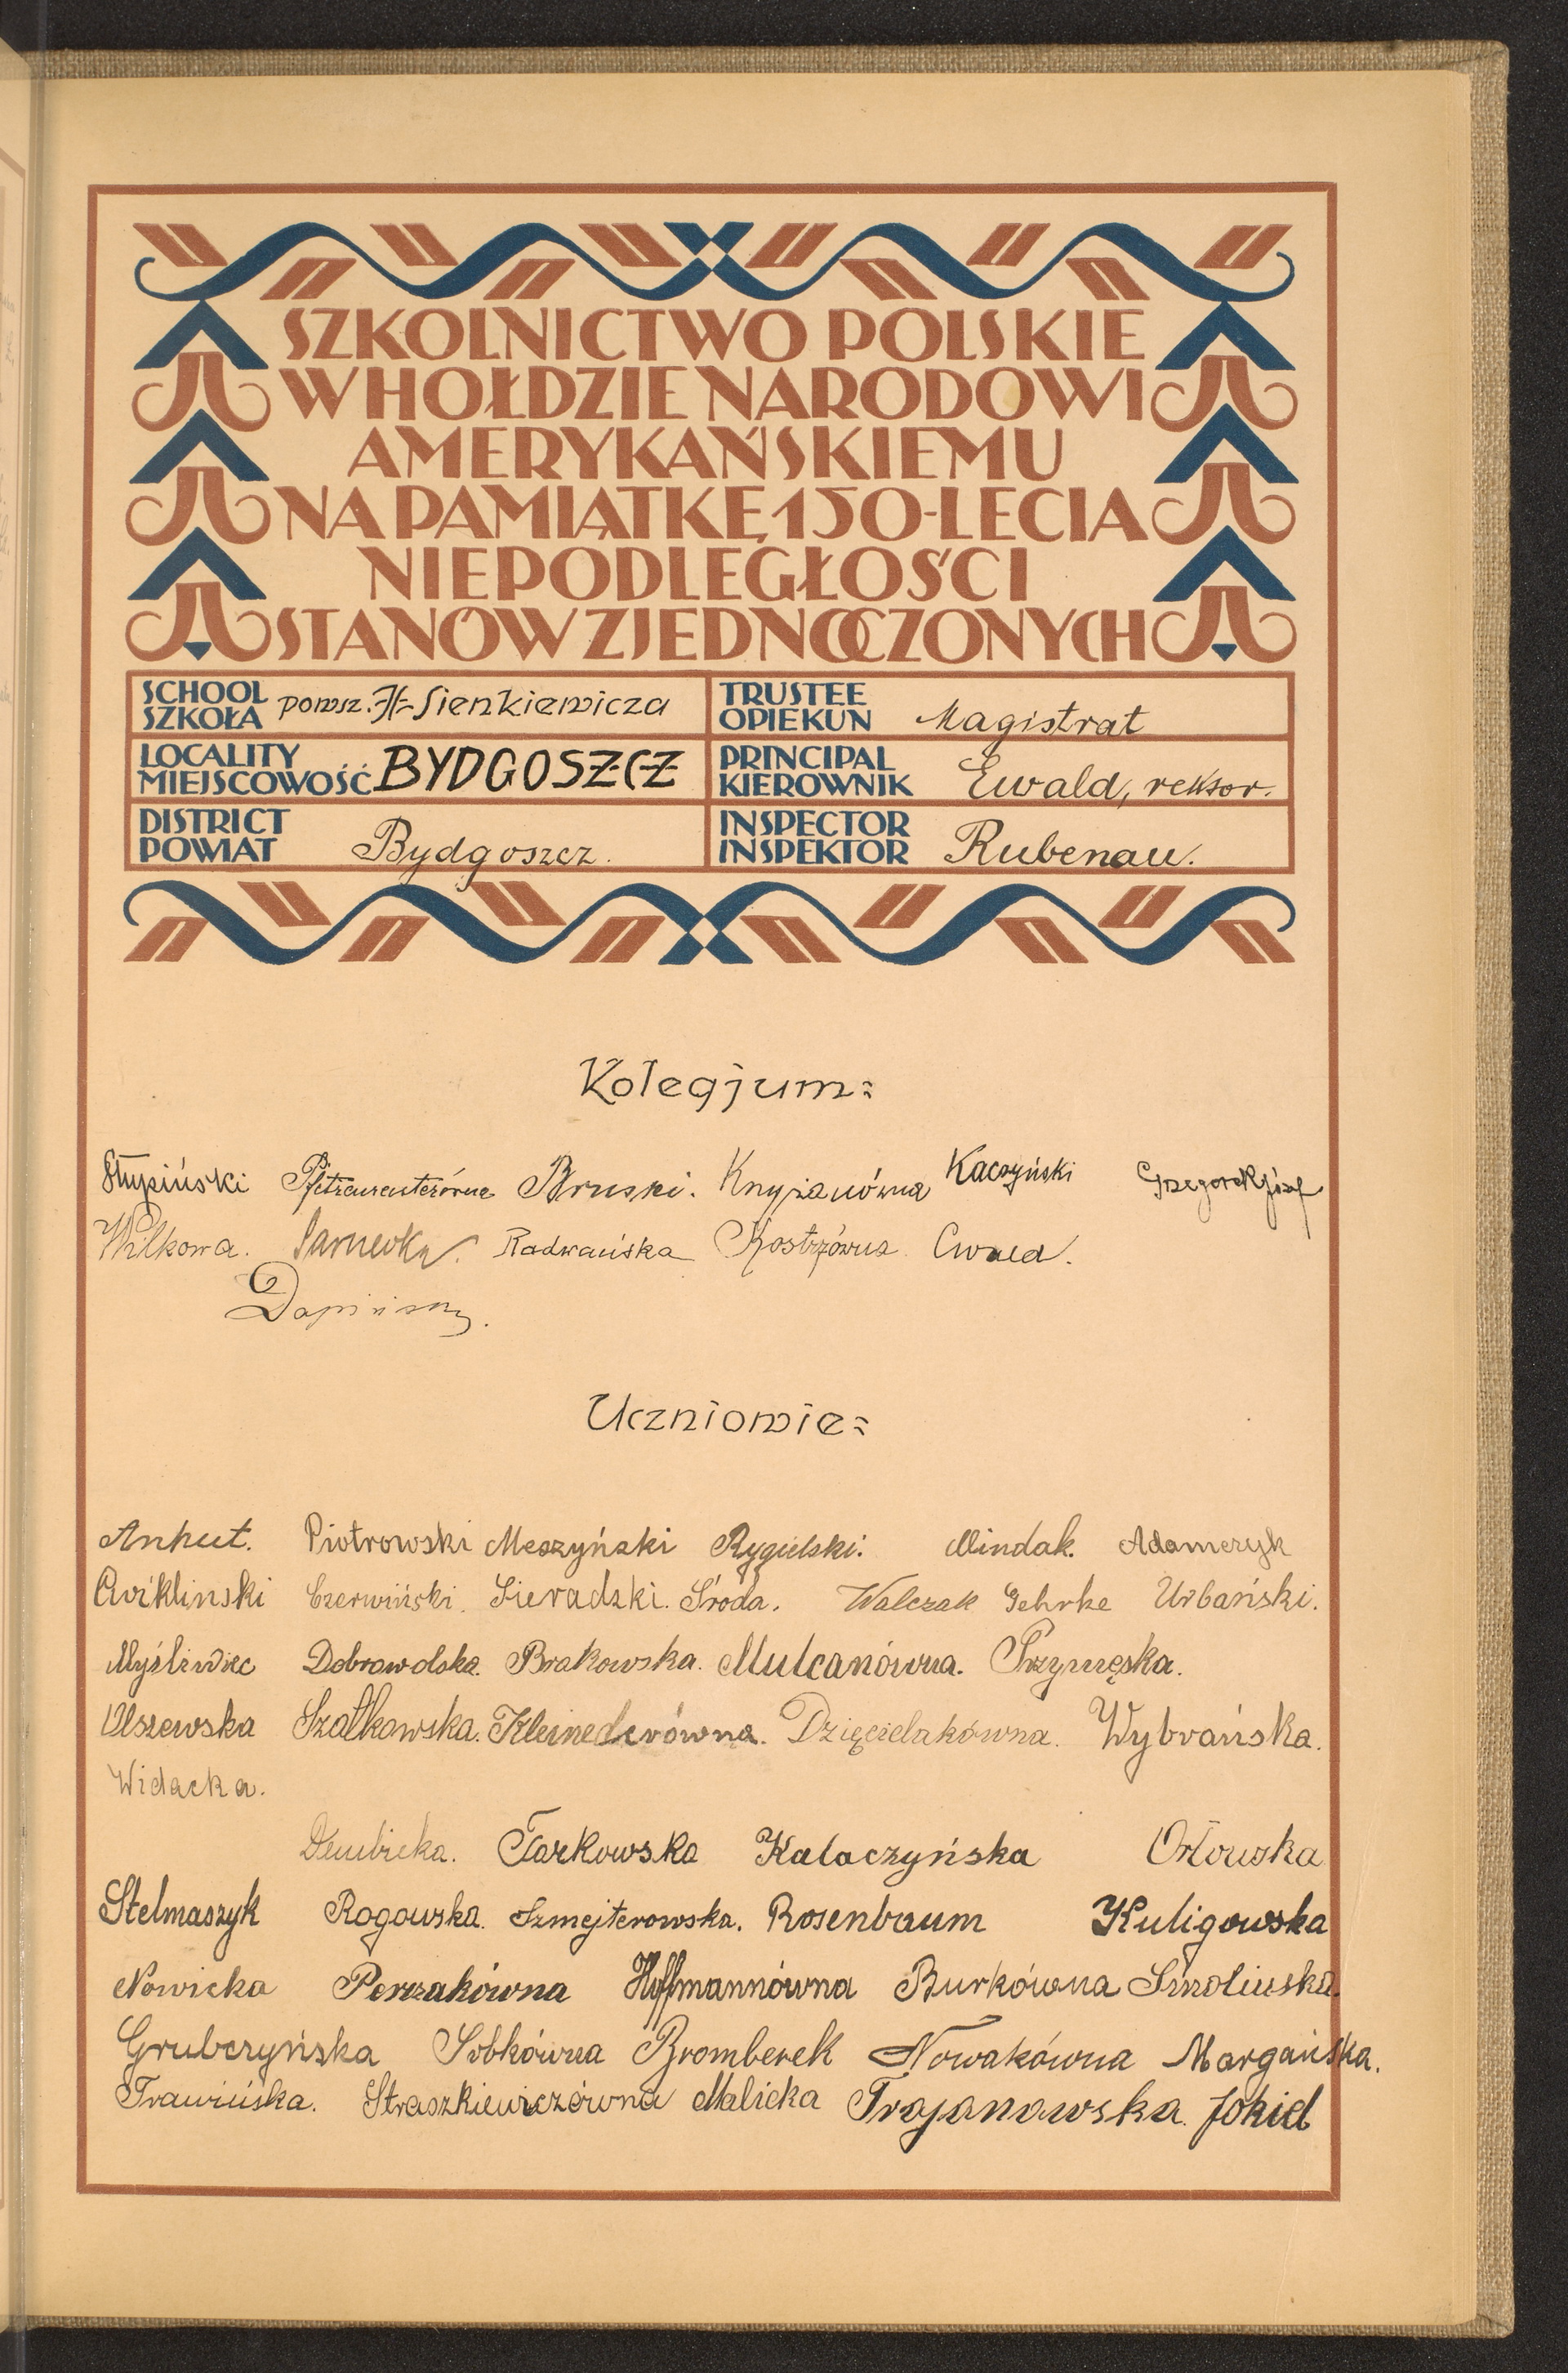 SZKOLNICTWO POLSKIE
W HOŁDZIE NARODOWI
AMERYKAŃSKIEMU
NA PAMIĄTKĘ 150-LECIA
NIEPODLEGŁOŚCI
STANÓW ZJEDNOCZONYCH
SCHOOL
SZKOŁA powsz. H. Sienkiewicza
TRUSTEE
OPIEKUN Magistrat
LOCALITY
MIEJSCOWOŚĆ BYDGOSZCZ
PRINCIPAL
KIEROWNIK Ewald, rektor.
DISTRICT
POWIAT Bydgoszcz.
INSPECTOR
INSPEKTOR Rubenau.
Kolegjum:
Słupiński Bruski. Knyżanówna Kaczyński Grzegorek Józef
Wilkowa. Radwańska Kostrzówna Ewald.
Uczniowie:
Anhut. Piotrowski Meszyński Rygielski. Mindak. Adamczyk
Ćwikliński Czerwiński. Sieradzki. Środa. Walczak Gehrke Urbański.
Myśliwiec Dobrowolska. Brakowska. Mulcanówna. Przymęska.
Olszewska Szałkowska. Kleinederówna. Dzięcielakówna. Wybrańska.
Widacka.
Dembicka. Tarkowska Kalaczyńska Orłowska
Stelmaszyk Rogowska. Szmejterowska. Rosenbaum Kuligowska
Nowicka Perzakówna Hoffmannówna Burkówna Smolińska.
Grubczyńska Sobkówna Bromberek Nowakówna Margańska.
Trawińska. Straszkiewiczówna Malicka Trojanowska. Jokiel